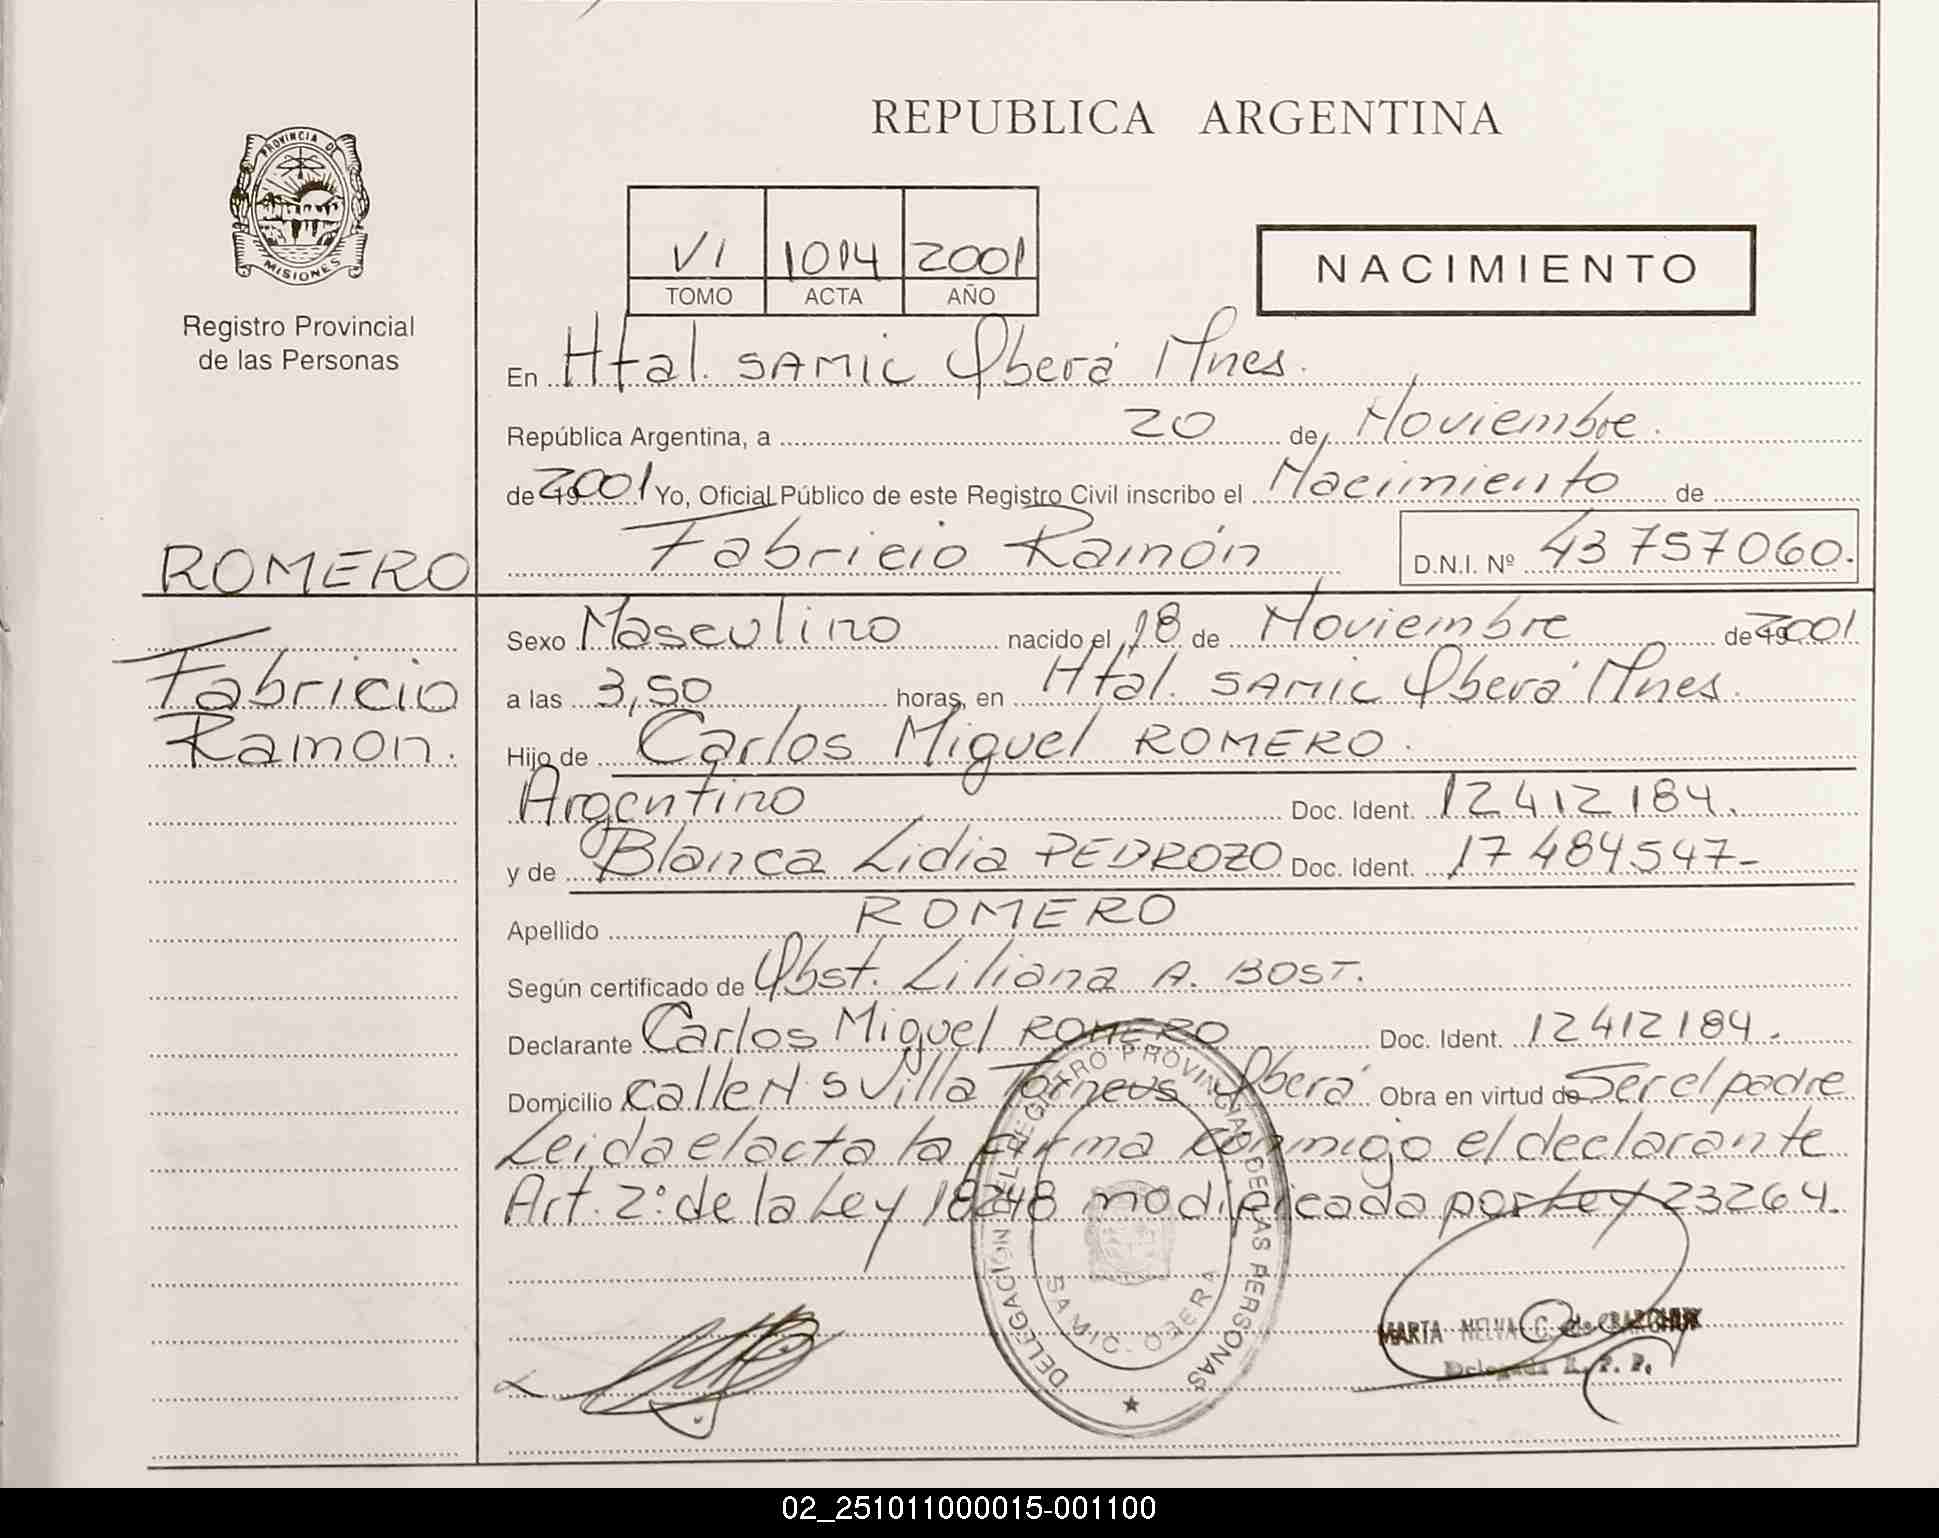 REPUBLICA ARGENTINA
PROVINCIA DE
MISIONES
Registro Provincial
de las Personas
VI 1014 2001
TOMO ACTA AÑO
NACIMIENTO
En Htal. SAMIC Oberá Mnes.
República Argentina, a 20 de Noviembre.
de 2001 Yo, Oficial Público de este Registro Civil inscribo el Nacimiento de
Fabricio Ramón D.N.I. Nº 43 757060.
ROMERO
Fabricio
Ramon.
Sexo Masculino nacido el 18 de Noviembre de 2001
a las 3,50 horas, en Htal. SAMIC Oberá Mnes.
Hijo de Carlos Miguel ROMERO.
Argentino Doc. Ident. 12412184.
y de Blanca Lidia PEDROZO Doc. Ident. 17 484547-
Apellido ROMERO
Según certificado de Obst. Liliana A. BOST.
Declarante Carlos Miguel ROMERO Doc. Ident. 12412184.
Domicilio calle N. S Villa Torneus Oberá Obra en virtud de Ser el padre
Leida el acta la firma conmigo el declarante
Art. 2° de la Ley 18248 modificada por Ley 23264.
DELEGACION DEL REGISTRO PROVINCIAL DE LAS PERSONAS
SAMIC. OBERA
MARTA NELVA C. de
Delegada R. P. P.
02_251011000015-001100